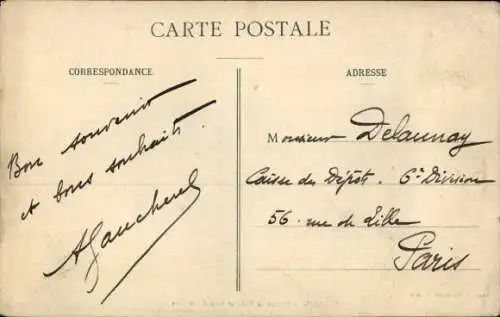 CARTE POSTALE
CORRESPONDANCE
ADRESSE
Bon souvenir
et bons souhaits.
Monsieur Delaunay
Caisse des Dépôts. 6e Division
56. rue de Lille
Paris